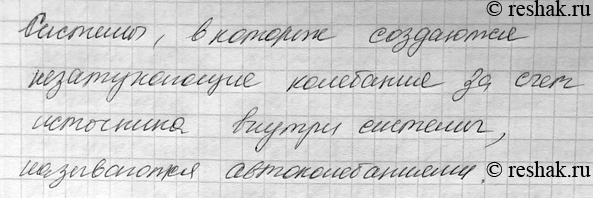 © reshak.ru
Системы, в которых создаются
незатухающие колебания за счет
источника внутри системы,
называются автоколебаниями.
© reshak.ru